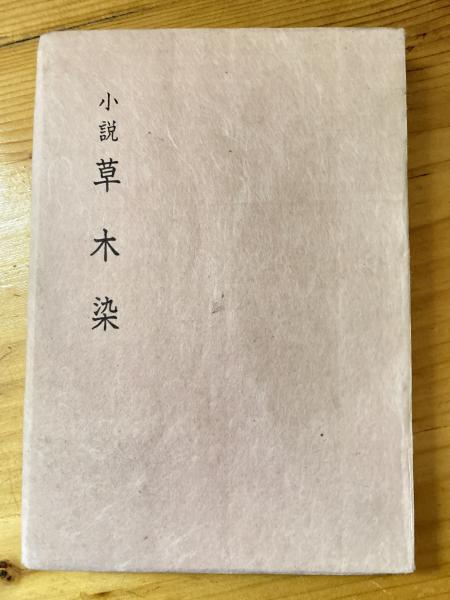 小説草木染